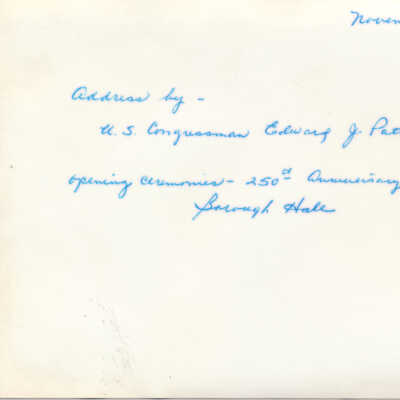 Novem
Address by -
U. S. Congressman Edward J. Pat
opening ceremonies - 250th Anniversary
Borough Hall